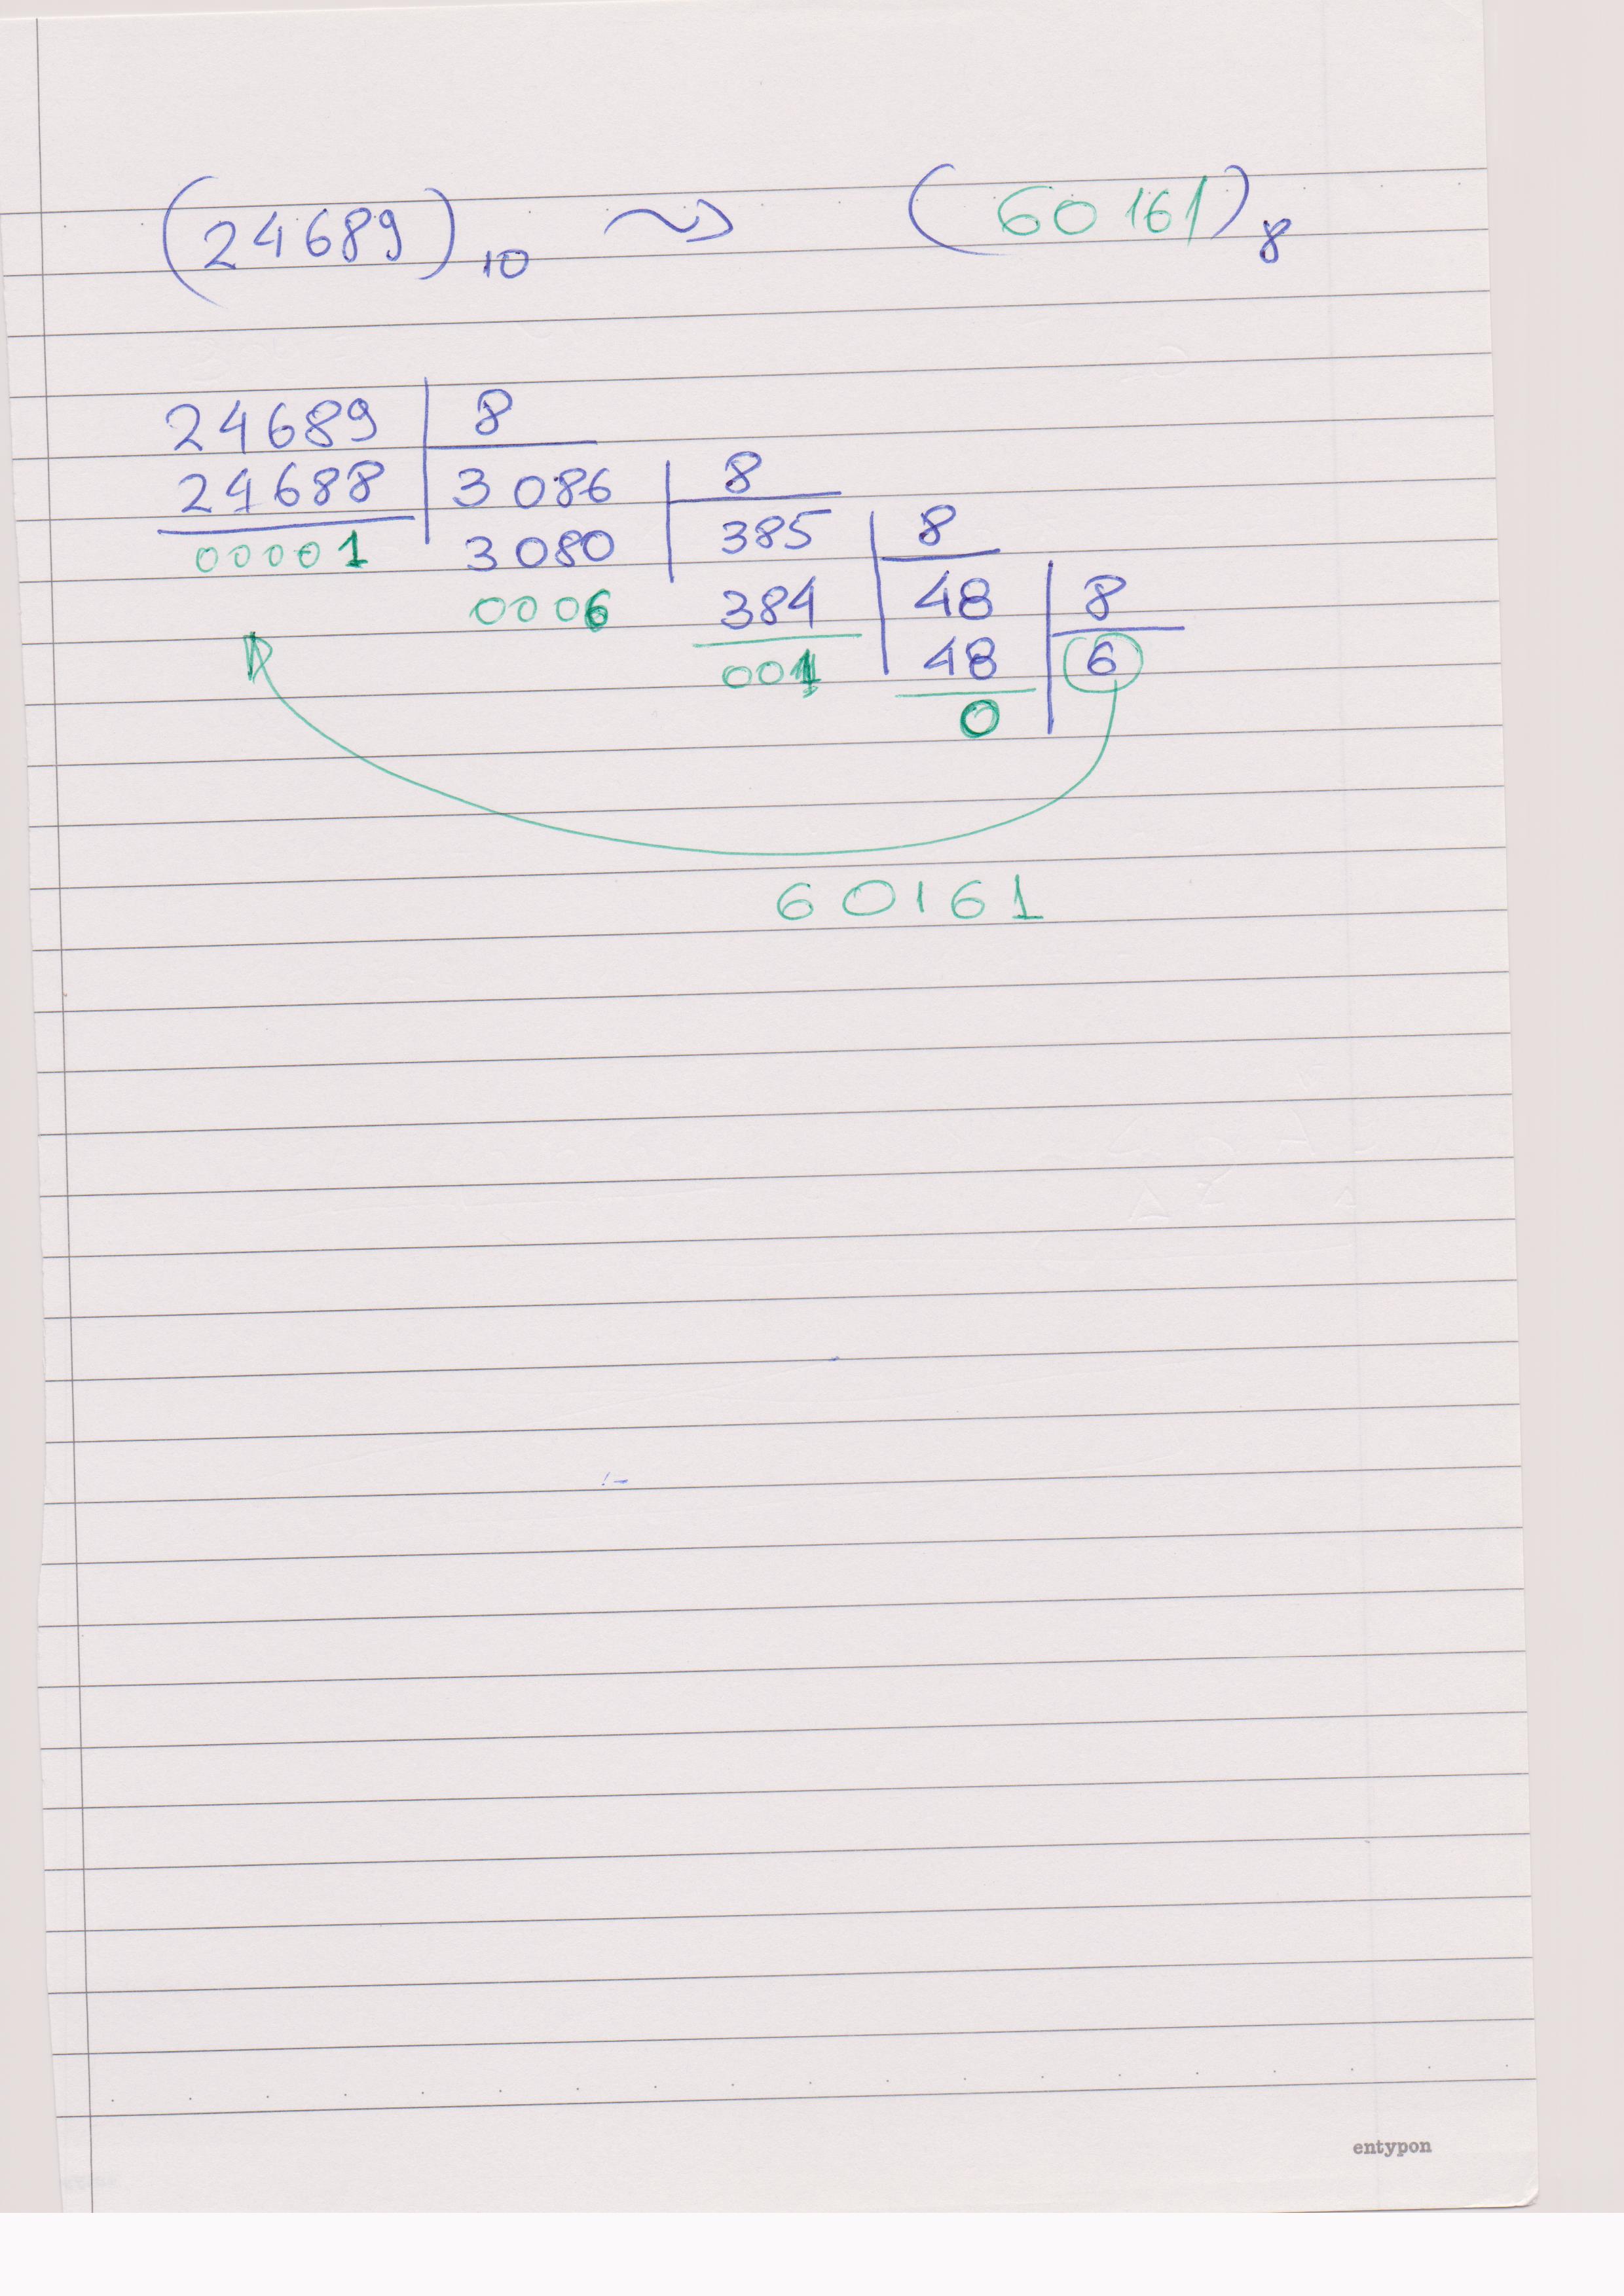 (24689)10 ⇝ (60161)8
24689 8
24688 3086 8
00001 3080 385 8
0006 384 48 8
001 48 6
0
60161
entypon